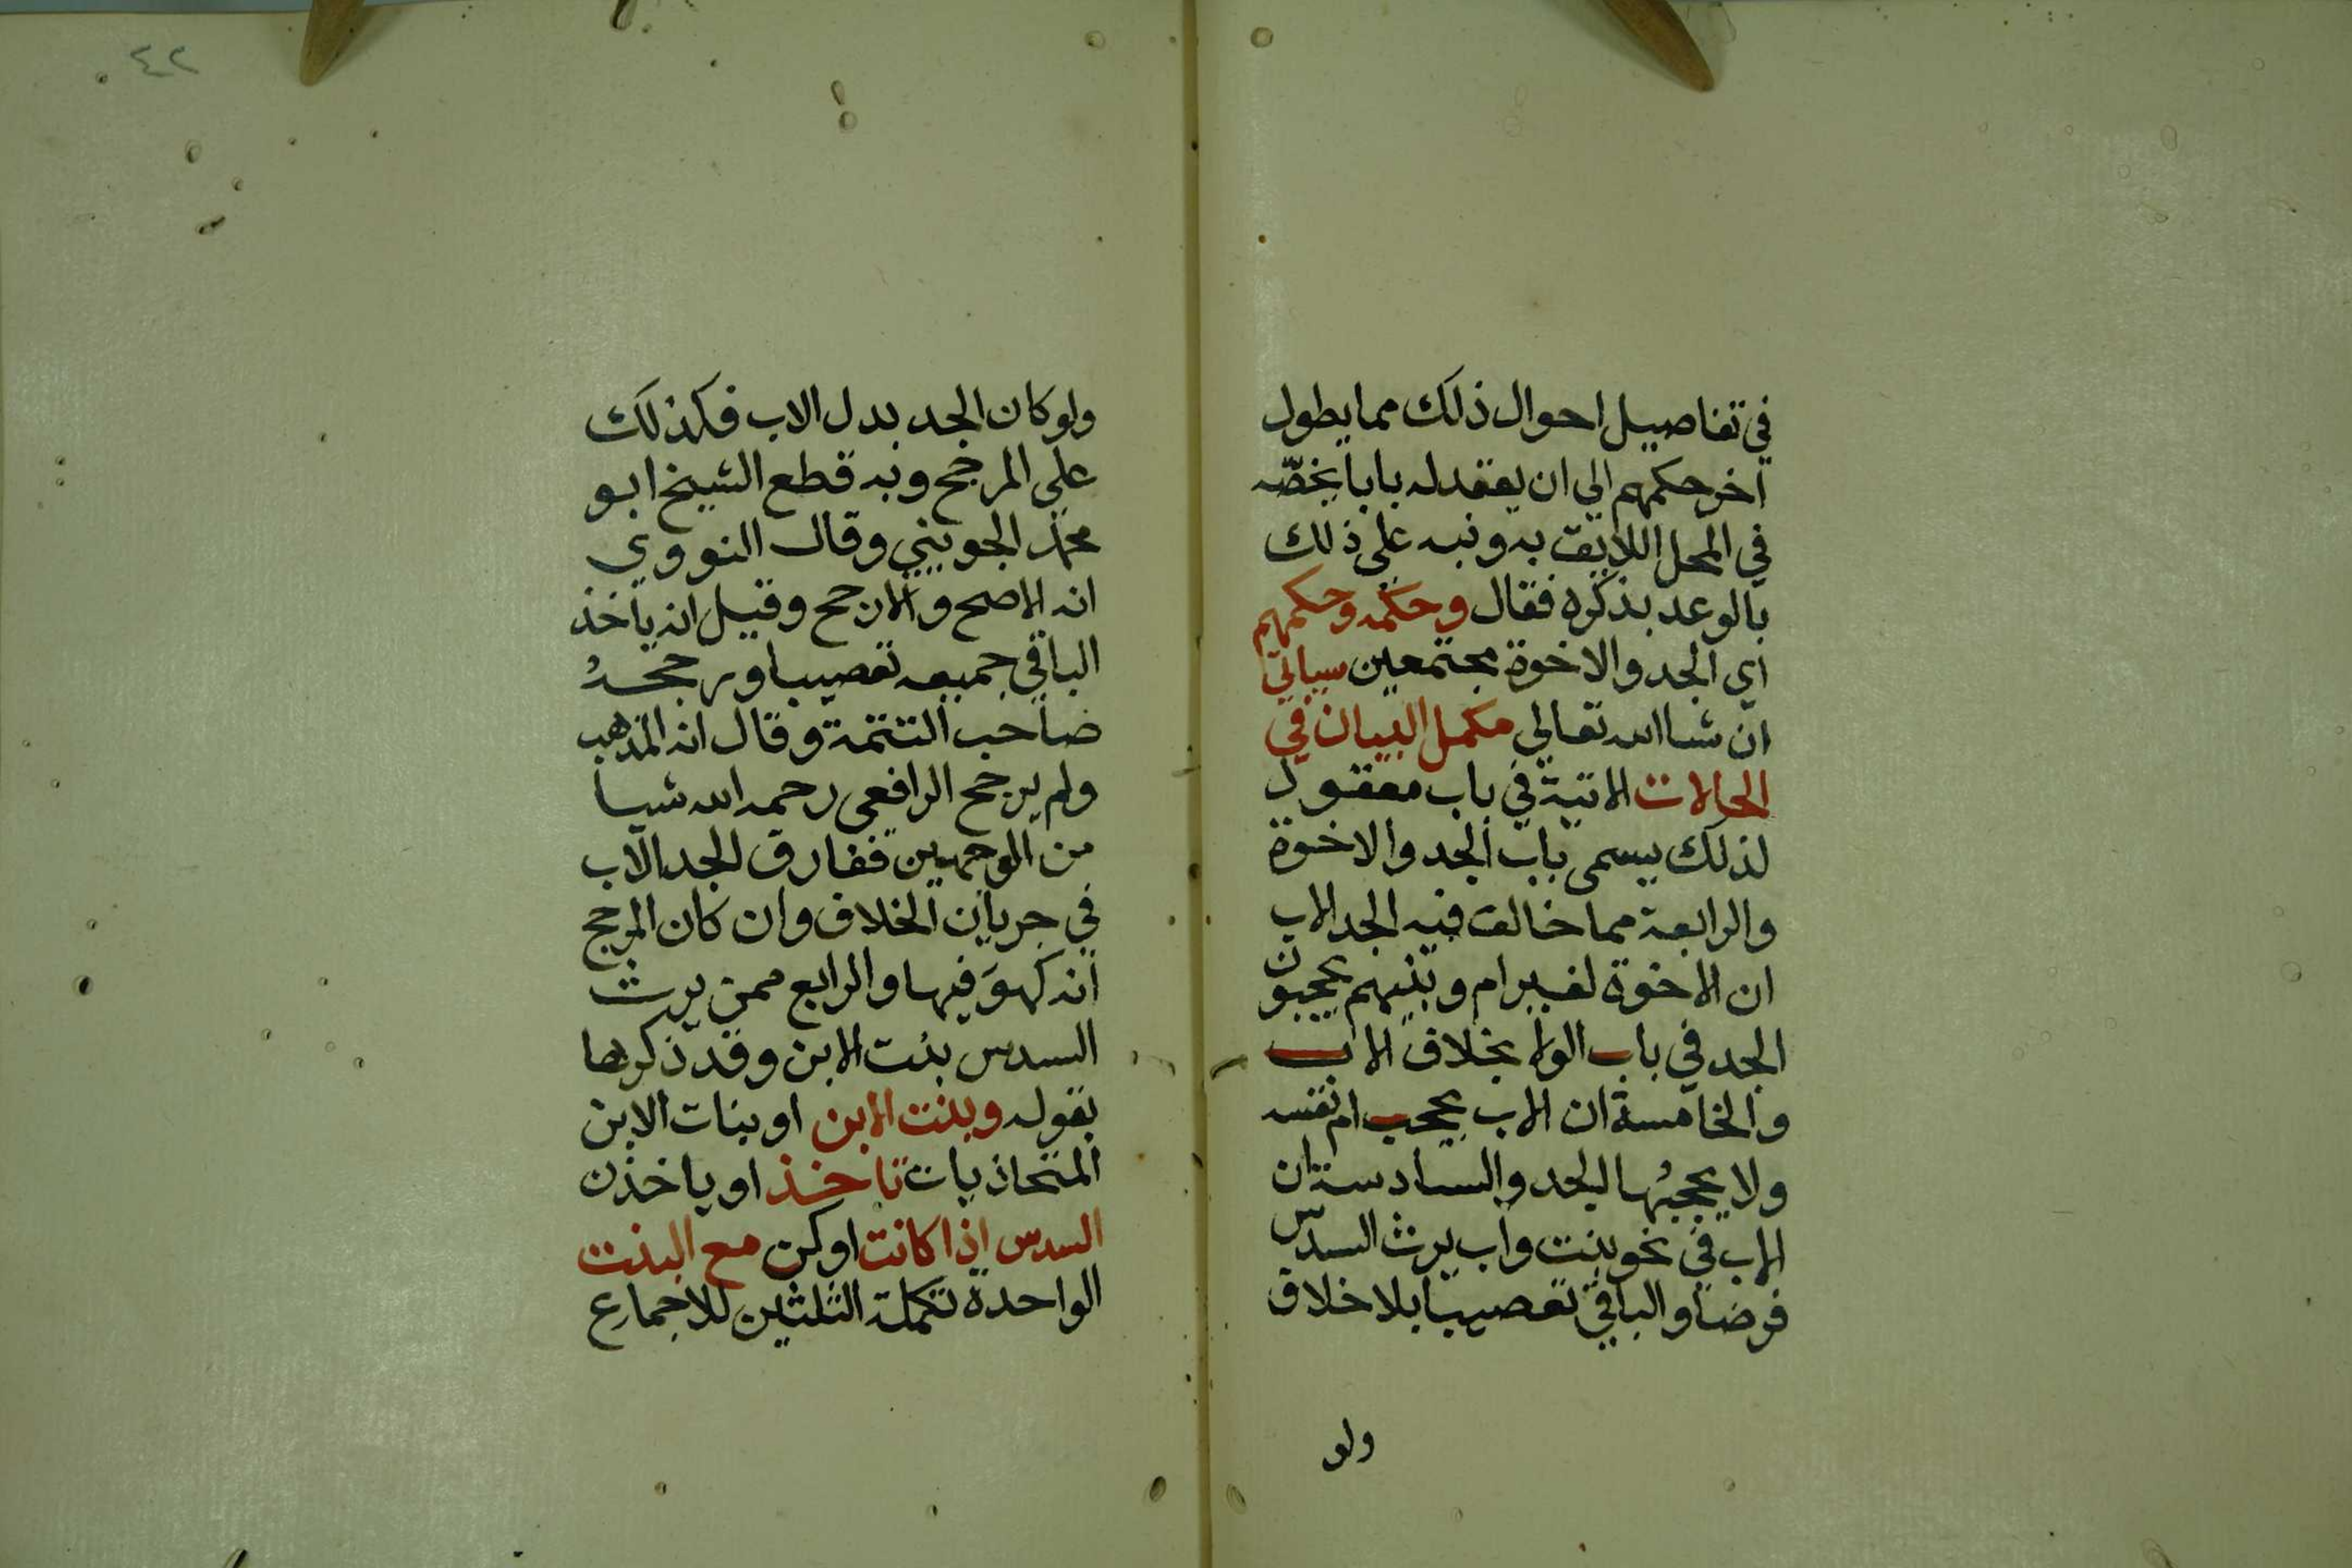 في تفاصيل احوال ذلك مما يطول
اخر حكمهم الي ان يعقد له بابا يخصّه
في المحل اللايق به ونبه على ذلك
بالوعد بذكره فقال وحكمه وحكمهم
اي الجد والاخوة مجتمعين سياتي
ان شا الله تعالي مكمل البيان في
الحالات الاتية في باب معقود
لذلك يسمى باب الجد والاخوة
والرابعة مما خالف فيه الجد الاب
ان الاخوة لغير ام وبنيهم يحجبون
الجد في باب الولا بخلاف الاب
والخامسة ان الاب يحجب ام نفسه
ولا يحجبُها الجد والسادسة ان
الاب في نحو بنت واب يرث السدس
فرضا والباقي تعصيبا بلا خلاف
ولو
٤٢
ولو كان الجد بدل الاب فكذلك
علي المرجح وبه قطع الشيخ ابو
محمد الجويني وقال النووي
انه الاصح والارجح وقيل انه ياخذ
الباقي جميعه تعصيبا ورجحهُ
صاحب التتمة وقال انه المذهب
ولم يرجح الرافعي رحمه الله شيا
من الوجهين ففارق الجد الاب
في جريان الخلاف وان كان المرجح
انه كهوَ فيها والرابع ممن يرث
السدس بنت الابن وقد ذكرها
بقوله وبنت الابن او بنات الابن
المتحاذيات تاخذ او ياخذن
السدس اذا كانت او كن مع البنت
الواحدة تكملة الثلثين للاجماع